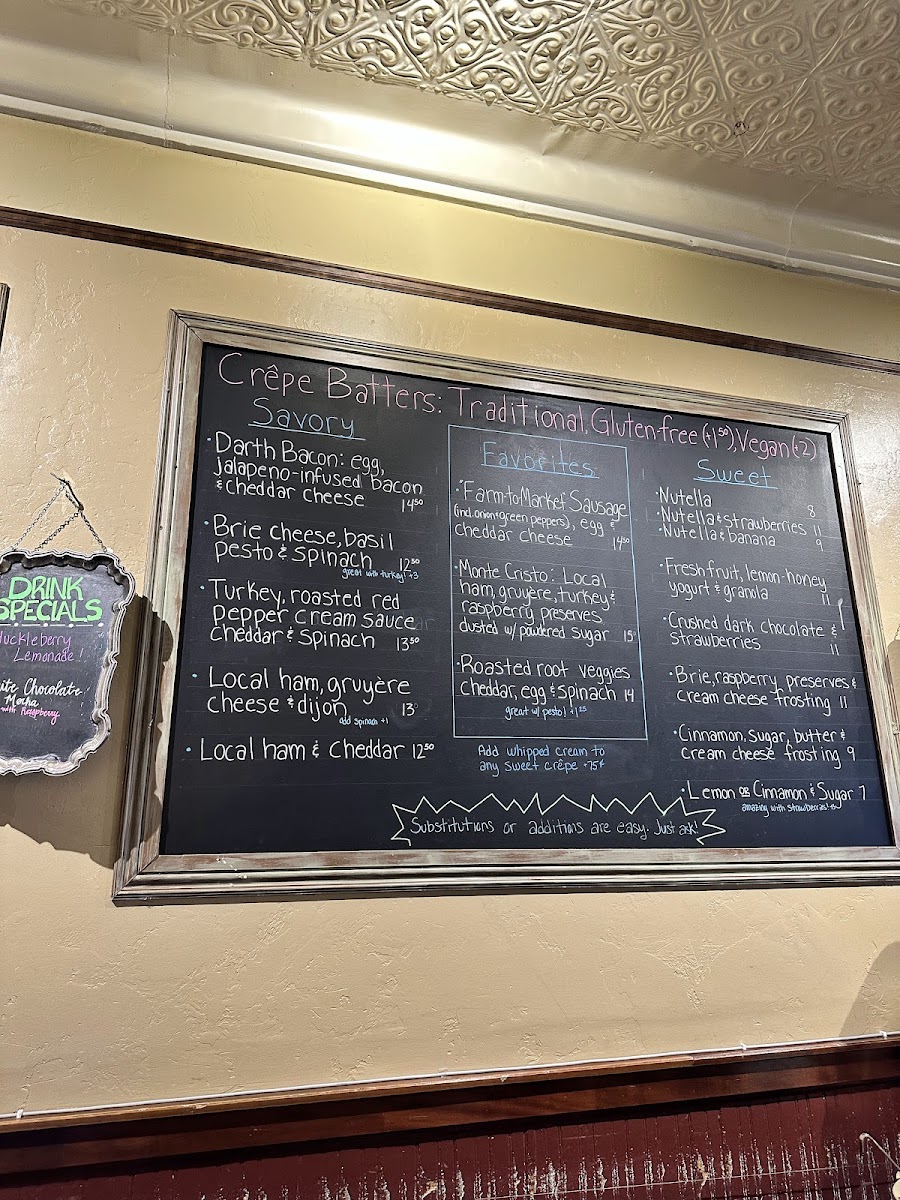 Crêpe Batters: Traditional, Gluten-free (+1⁵⁰), Vegan (+2)
Savory
·Darth Bacon: egg,
jalapeno-infused bacon
& cheddar cheese 14⁵⁰
·Brie cheese, basil
pesto & spinach 12⁵⁰
great with turkey! +3
·Turkey, roasted red
pepper cream sauce
cheddar & spinach 13⁵⁰
·Local ham, gruyère
cheese & dijon 13
add spinach +1
·Local ham & cheddar 12⁵⁰
Favorites
·Farm-to-Market Sausage
(incl. onion+green peppers), egg &
cheddar cheese 14⁵⁰
·Monte Cristo: Local
ham, gruyère, turkey &
raspberry preserves
dusted w/ powdered sugar 15
·Roasted root veggies
cheddar, egg & spinach 14
great w/ pesto! +1²⁵
Add whipped cream to
any sweet crêpe +75¢
Sweet
·Nutella 8
·Nutella & strawberries 11
·Nutella & banana 9
·Fresh fruit, lemon-honey
yogurt & granola 11
·Crushed dark chocolate &
strawberries 11
·Brie, raspberry preserves &
cream cheese frosting 11
·Cinnamon, sugar, butter &
cream cheese frosting 9
·Lemon or Cinnamon & Sugar 7
amazing with strawberries!
Substitutions or additions are easy. Just ask!
DRINK
SPECIALS
Huckleberry
Lemonade!
Chocolate
Mocha
with Raspberry